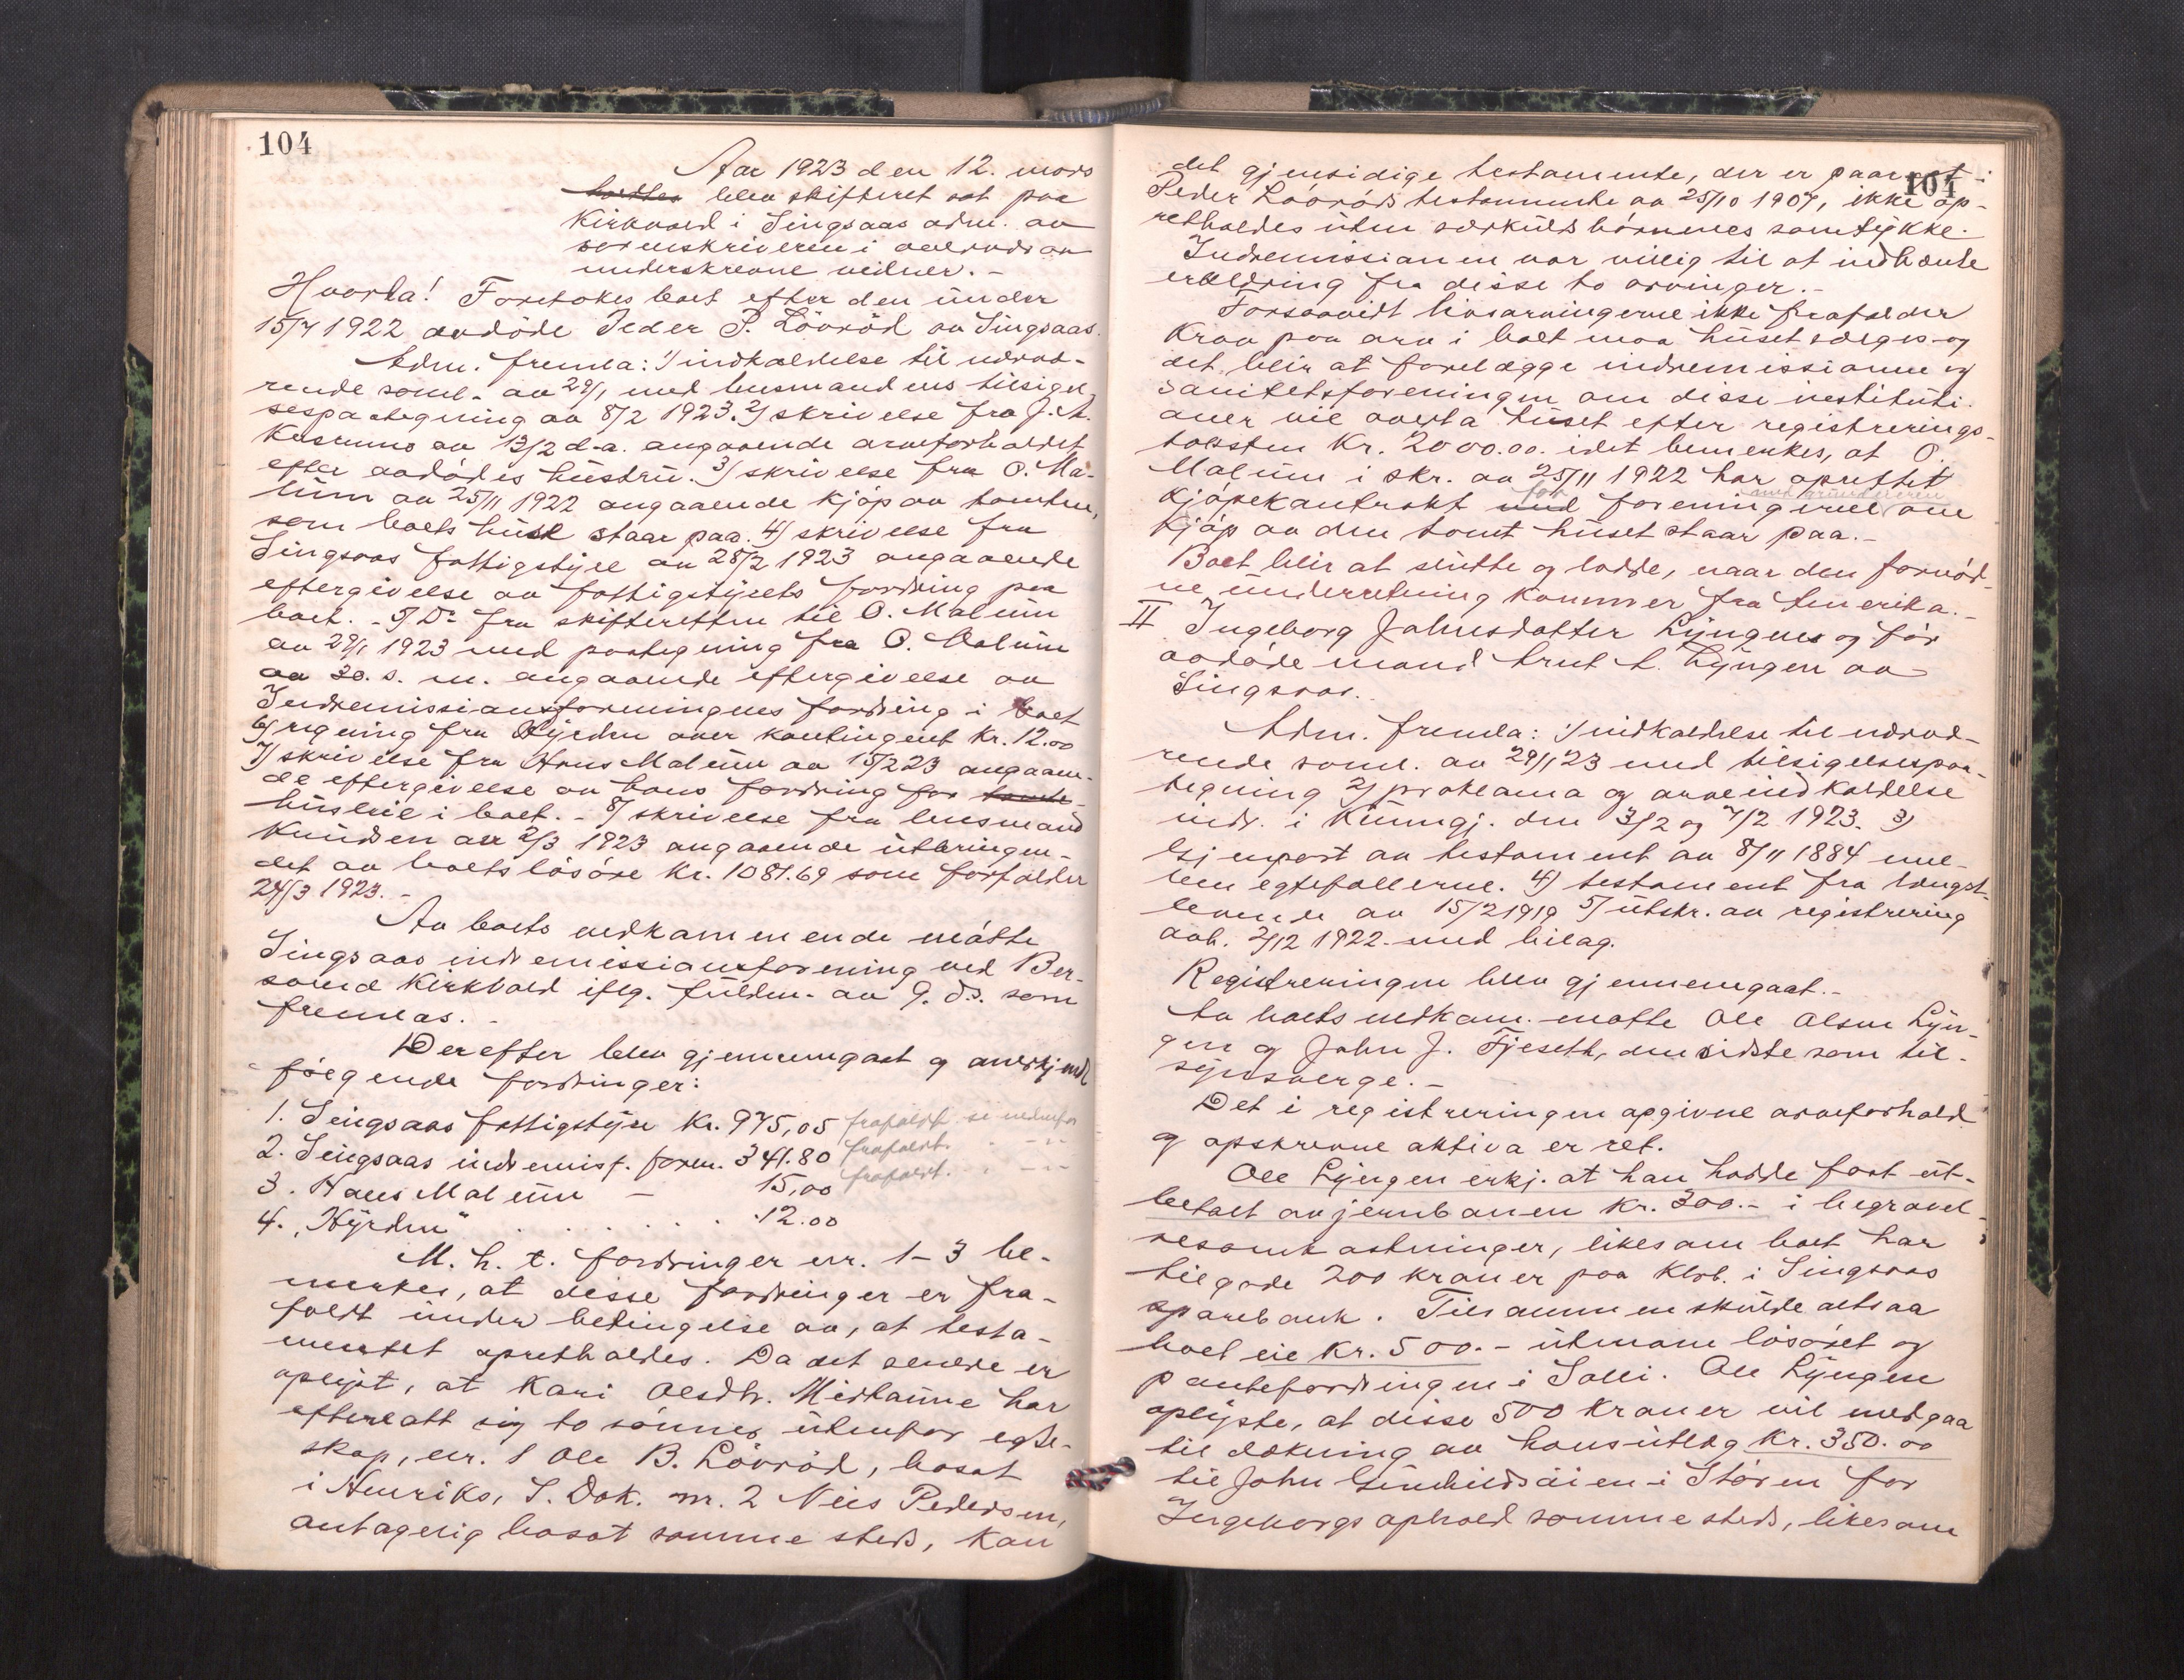 104
Aar 1923 den 12. mars
holdtes blev skifteret sat paa
Kirkvold i Singsaas adm. av
sorenskriveren i overvær av
underskrevne vidner. -
Hvorda! Foretokes boet efter den under
15/7 1922 avdøde Peder P. Løvrød av Singsaas.
Adm. fremla: 1) indkaldelse til nærvæ-
rende saml. av 29/1 med lensmandens tilsigel-
sespaategning av 8/2 1923. 2) skrivelse fra J. A.
av 13/2 d.a. angaaende arveforholdet
efter avdødes hustru. 3) skrivelse fra O. Ma-
lum av 25/11 1922 angaaende kjøp av tomten,
som boets huse staar paa. 4) skrivelse fra
Singsaas fattigstyre av 28/2 1923 angaaende
eftergivelse av fattigstyrets fordring paa
boet. - 5) Do fra skifteretten til O. Malum
av 29/1 1923 med paategning fra O. Malum
av 30. s. m. angaaende eftergivelse av
Indremissionsforeningens fordring i boet
6) regning fra Hyrden over kontingent Kr. 12.00
7) skrivelse fra Hans Malum av 15/2 23 angaaen-
de eftergivelse av hans fordring for tomte-
husleie i boet. - 8) skrivelse fra lensmand
Knudsen av 2/3 1923 angaaende utbringen-
det av boets løsøre kr. 1081.69 som forfalder
24/3 1923. -
Av boets vedkommende møtte
Singsaas indremissionsforening ved Ber-
svend Kirkvold iflg. fuldm. av 9. ds. som
fremlas. -
Derefter blev gjennemgaat og anerkjendt
følgende fordringer:
1. Singsaas fattigstyre Kr. 975,05 frafaldt se nedenfor
2. Singsaas indremisj. foren. 341.80 frafaldt. - -
3. Hans Malum - 15,00 frafaldt. - -
4. "Hyrden" . . . . . . . 12.00
M. h. t. fordringer nr. 1-3 be-
merkes, at disse fordringer er fra-
faldt under betingelse av, at testa-
mentet opretholdes. Da det senere er
oplyst, at Kari Olsdtr. Midtaune har
efterlatt sig to sønner utenfor egte-
skap, nr. 1 Ole B. Løvrød, bosat
i Amerika, S. Dak. nr. 2 Nils Pedersen,
antagelig bosat samme sted, kan
104
det gjensidige testamente, der er paaropt i
Peder Løvrøds testamente av 25/10 1907, ikke op-
retholdes uten særkuldsbørnenes samtykke.
Indremissionen var villig til at indhente
erklæring fra disse to arvinger. -
Forsaavidt livsarvingerne ikke frafalder
krav paa arv i boet maa huset sælges og
det blir at forelægge indremissionen og
Sanitetsforeningen om disse institusi-
oner vil overta huset efter registrerings-
taksten Kr. 2000.00. idet bemerkes, at O.
Malum i skr. av 25/11 1922 har oprettet
kjøpekontrakt med for foreningerne med grundeieren om
kjøp av den tomt huset staar paa. -
Boet blir at slutte og lodde, naar den fornød-
ne underretning kommer fra Amerika. -
II Ingeborg Johnsdatter Lyngens og før
avdøde mand Arnt A. Lyngen av
Singsaas.
Adm. fremla: 1) indkaldelse til nærvæ-
rende saml. av 29/1 23 med tilsigelsespaa-
tegning 2) proklama og arveindkaldelse
indr. i Kunngj. den 3/2 og 7/2 1923. 3)
Gjenpart av testament av 8/11 1884 mel-
lem egtefollerne. 4) testament fra længst-
levende av 15/2 1919 5) utskr. av registrering
avh. 2/12 1922. med bilag.
Registreringen blev gjennemgaat. -
Av boets vedkom. møtte Ole Olsen Lyn-
gen og John J. Fjeseth, den sidste som til-
synsverge. -
Det i registreringen opgivne arveforhold
og opskrevne aktiva er ret.
Ole Lyngen erkj. at han hadde faat ut-
betalt av jernbanen Kr. 300.- i begravel-
sesomkostninger, likesom boet har
tilgode 200 kroner paa Klvb. i Singsaas
sparebank. Tilsammen skulde altsaa
boet eie Kr. 500.- utenom løsøret og
pantefordringen i Solli. Ole Lyngen
oplyste, at disse 500 kroner vil medgaa
til dækning av hans utlæg Kr. 350.00
til John Gunhildsøien i Støren for
Ingeborgs ophold samme sted, likesom